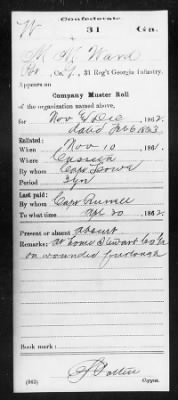 Confederate
W 31 Ga.
M. M. Ward
Co. 31 Reg't Georgia Infantry.
Appears on
Company Muster Roll
of the organization named above,
for Nov & Dec , 1862.
dated Feb 6 1863
Enlisted:
When Nov 10 , 186 .
Where
By whom Capt Lowe
Period
Last paid:
By whom Capt
To what time 30 , 1862.
Present or absent absent
Remarks: at home Stewart Co Ga
on wounded furlough
Book mark:
(642) Copyist.